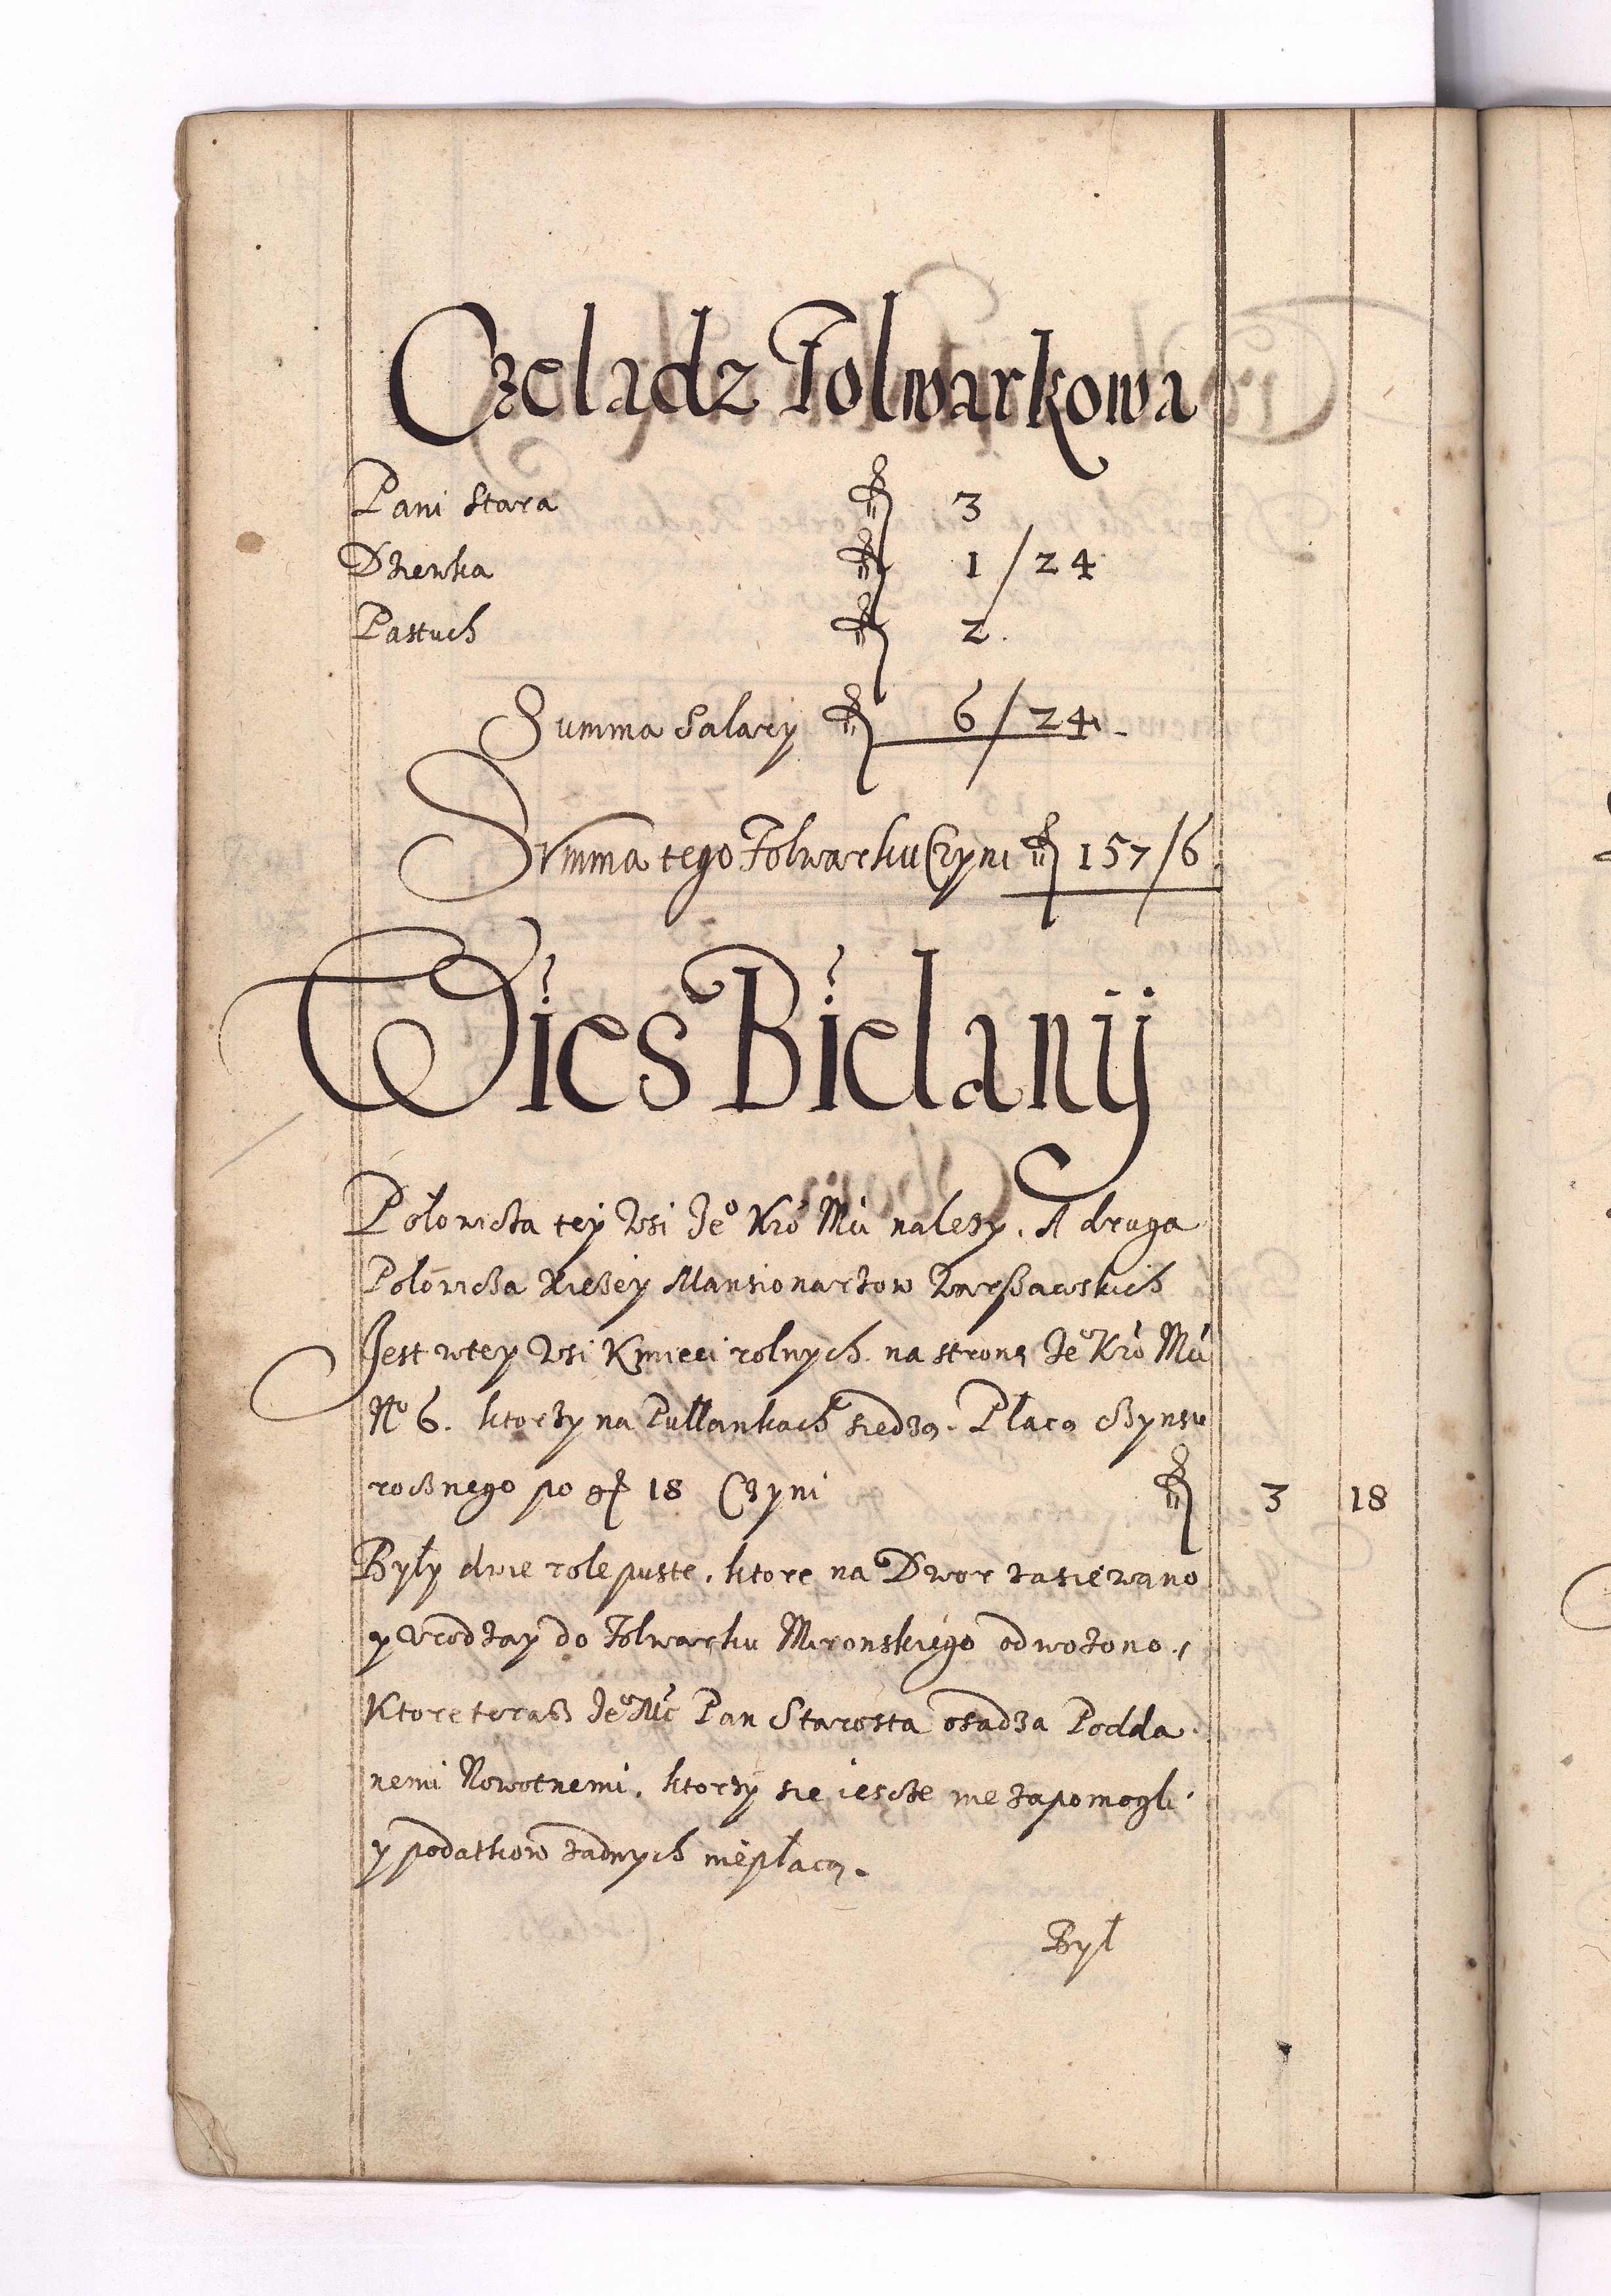 Czeladz Folwarkowa
Pani Stara fl 3
Dziewka fl 1/24
Pastuch fl 2.
Summa Salary fl 6/24.
Summa tego Folwarku Czyni fl 157/6.
Wies Bielany
Połowicza tey Wsi Jeº Kró Mci należy. A druga
Połowicza Xiężey Mansionarzow Warszawskich
Jest wtey Wsi Kmieci rolnych na stronę Jeº Kró Mci
Nº 6. ktorzy na Pullankach siedzą. Płacą Czynsu
rocznego po gr 18 Czyni fl 3 18
Były dwie role puste, ktore na Dwor zasiewano
y Vrodzay do Folwarku Mironskiego odwożono,
Ktore teraz Jeº Mc Pan Starosta osadza Podda
nemi Nowotnemi, ktorzy sie iescze nie zapomogli
y podatkow żadnych niepłacą.
Był